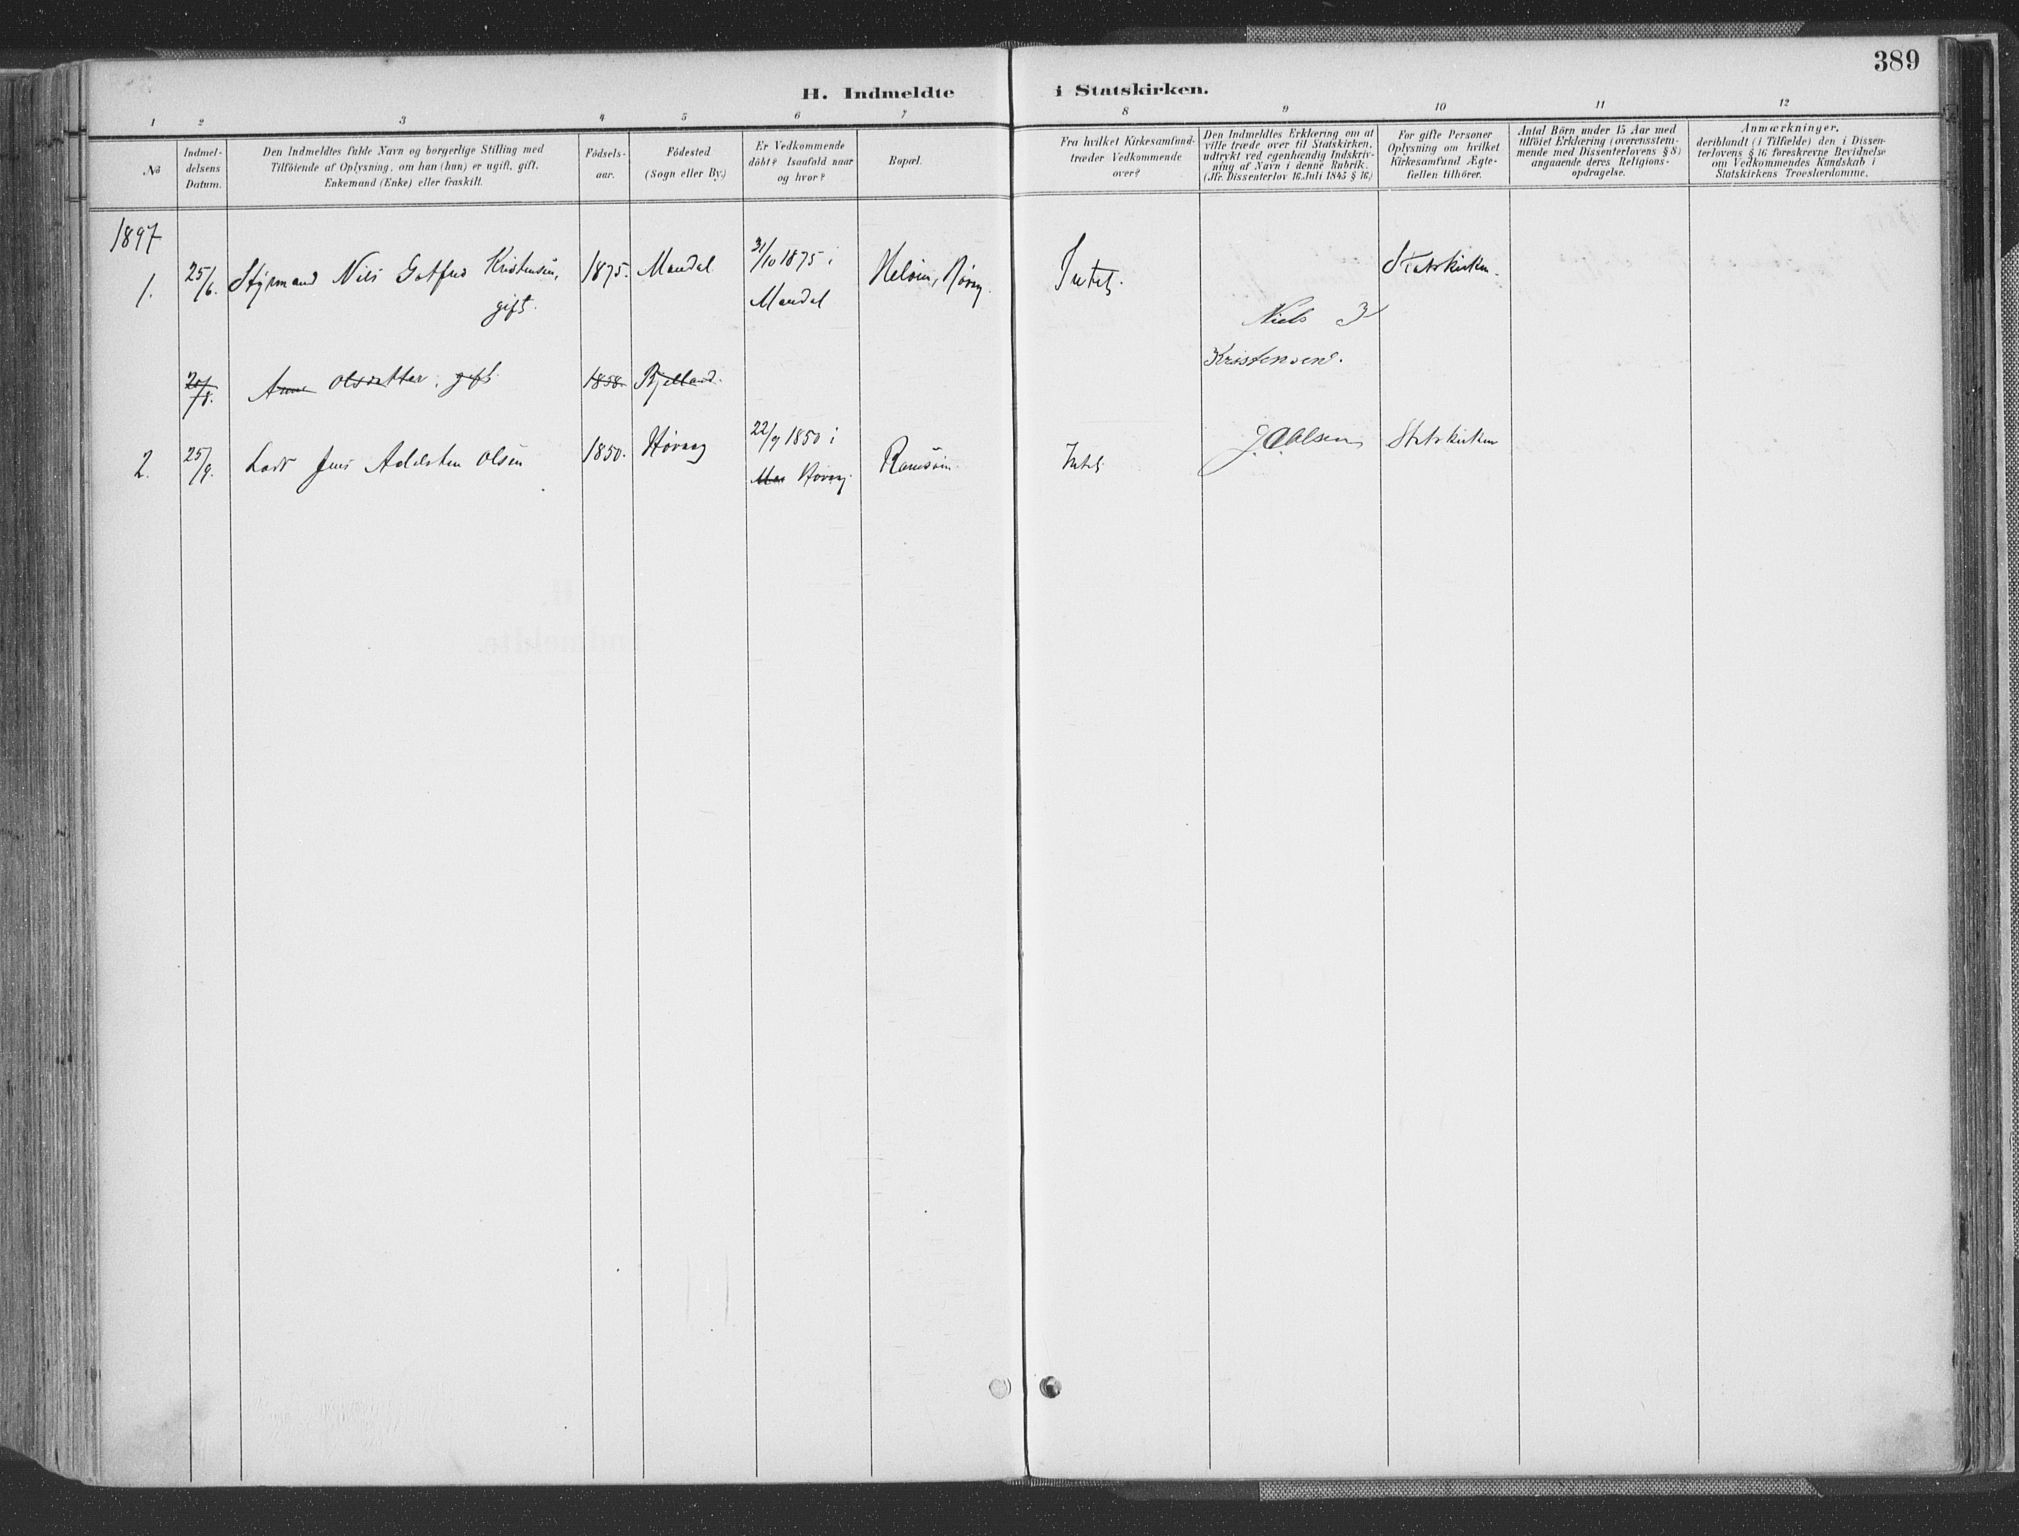 389
H. Indmeldte i Statskirken.
1 2 3 4 5 6 7 8 9 10 11 12
No
Indmel-
delsens
Datum.
Den Indmeldtes fulde Navn og borgerlige Stilling med
Tilföiende af Oplysning, om han (hun) er ugift, gift,
Enkemand (Enke) eller fraskilt.
Födsels-
aar.
Födested
(Sogn eller By.)
Er Vedkommende
döbt? Isaafald naar
og hvor?
Bopæl.
Fra hvilket Kirkesamfund
træder Vedkommende
over?
Den Indmeldtes Erklæring om at
ville træde over til Statskirken,
udtrykt ved egenhændig Indskriv-
ning af Navn i denne Rubrik.
(Jfr. Dissenterlov 16. Juli 1845 § 16.)
For gifte Personer
Oplysning om hvilket
Kirkesamfund Ægte-
fællen tilhörer.
Antal Börn under 15 Aar med
tilföiet Erklæring (overensstem-
mende med Dissenterlovens § 8)
angaaende deres Religions-
opdragelse.
Anmærkninger,
deriblandt (i Tilfælde) den i Dissen-
terlovens § 16 foreskrevne Bevidnelse
om Vedkommendes Kundskab i
Statskirkens Troeslærdomme.
1897
1. 25/6. Styrmand Nils Gotfred Kristensen, 1875. Mandal 31/10 1875 i Intet. Statskirken.
gift. Mandal
Niels
Kristensen.
Anne Olsdatter, gift 1858. Bjelland.
2. 25/9. Lods Jens Adelsten Olsen 1850. Høvaag 22/9 1850 i Ramsöen. Intet J. A. Olsen Statskirken
Høvag.